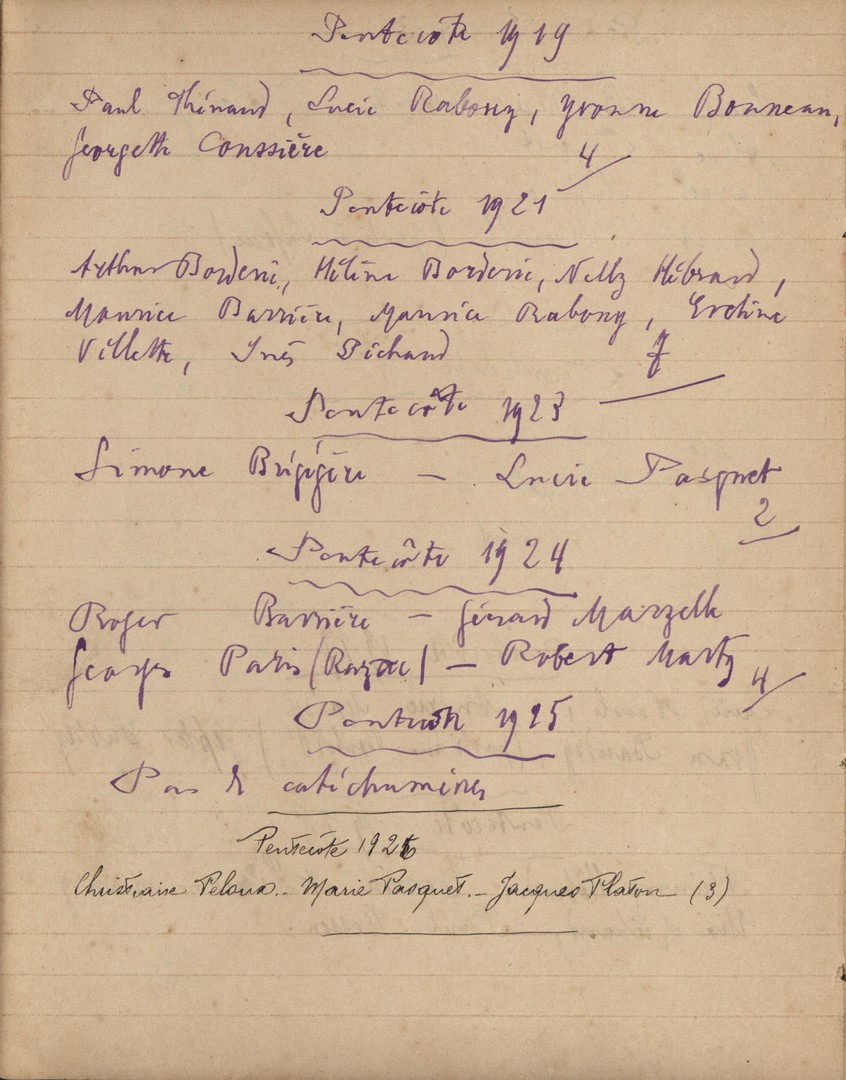 Pentecôte 1919
Paul Thénaud, Lucie Rabony, Yvonne Bonneau,
Georgette Coussière
4
Pentecôte 1921
Arthur Borderie, Hélène Borderie, Nelly Hébrard,
Maurice Barrière, Maurice Rabony, Eveline
Villette, Inès Pichaud
7
Pentecôte 1923
Simone Brugière — Lucie Pasquet
2
Pentecôte 1924
Roger Barrière — Gérard Marzelle
Georges Paris (Razac) — Robert Marty
4
Pentecôte 1925
Pas de catéchumènes
Pentecôte 1926
Christiane Peloux. - Marie Pasquet. - Jacques Platon (3)